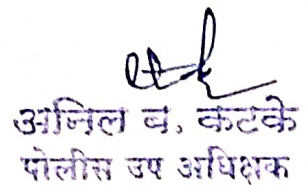 अनिल व. कटके
पोलीस उप अधिक्षक